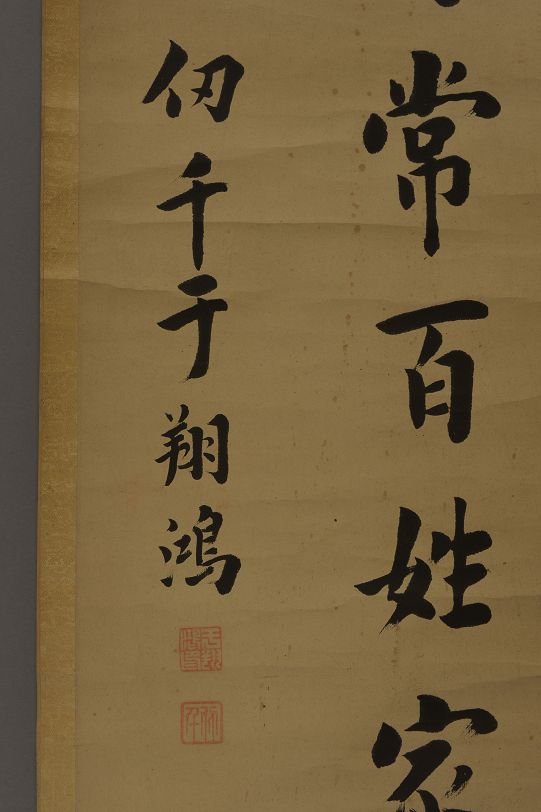 常百姓家
仞千于翔鴻